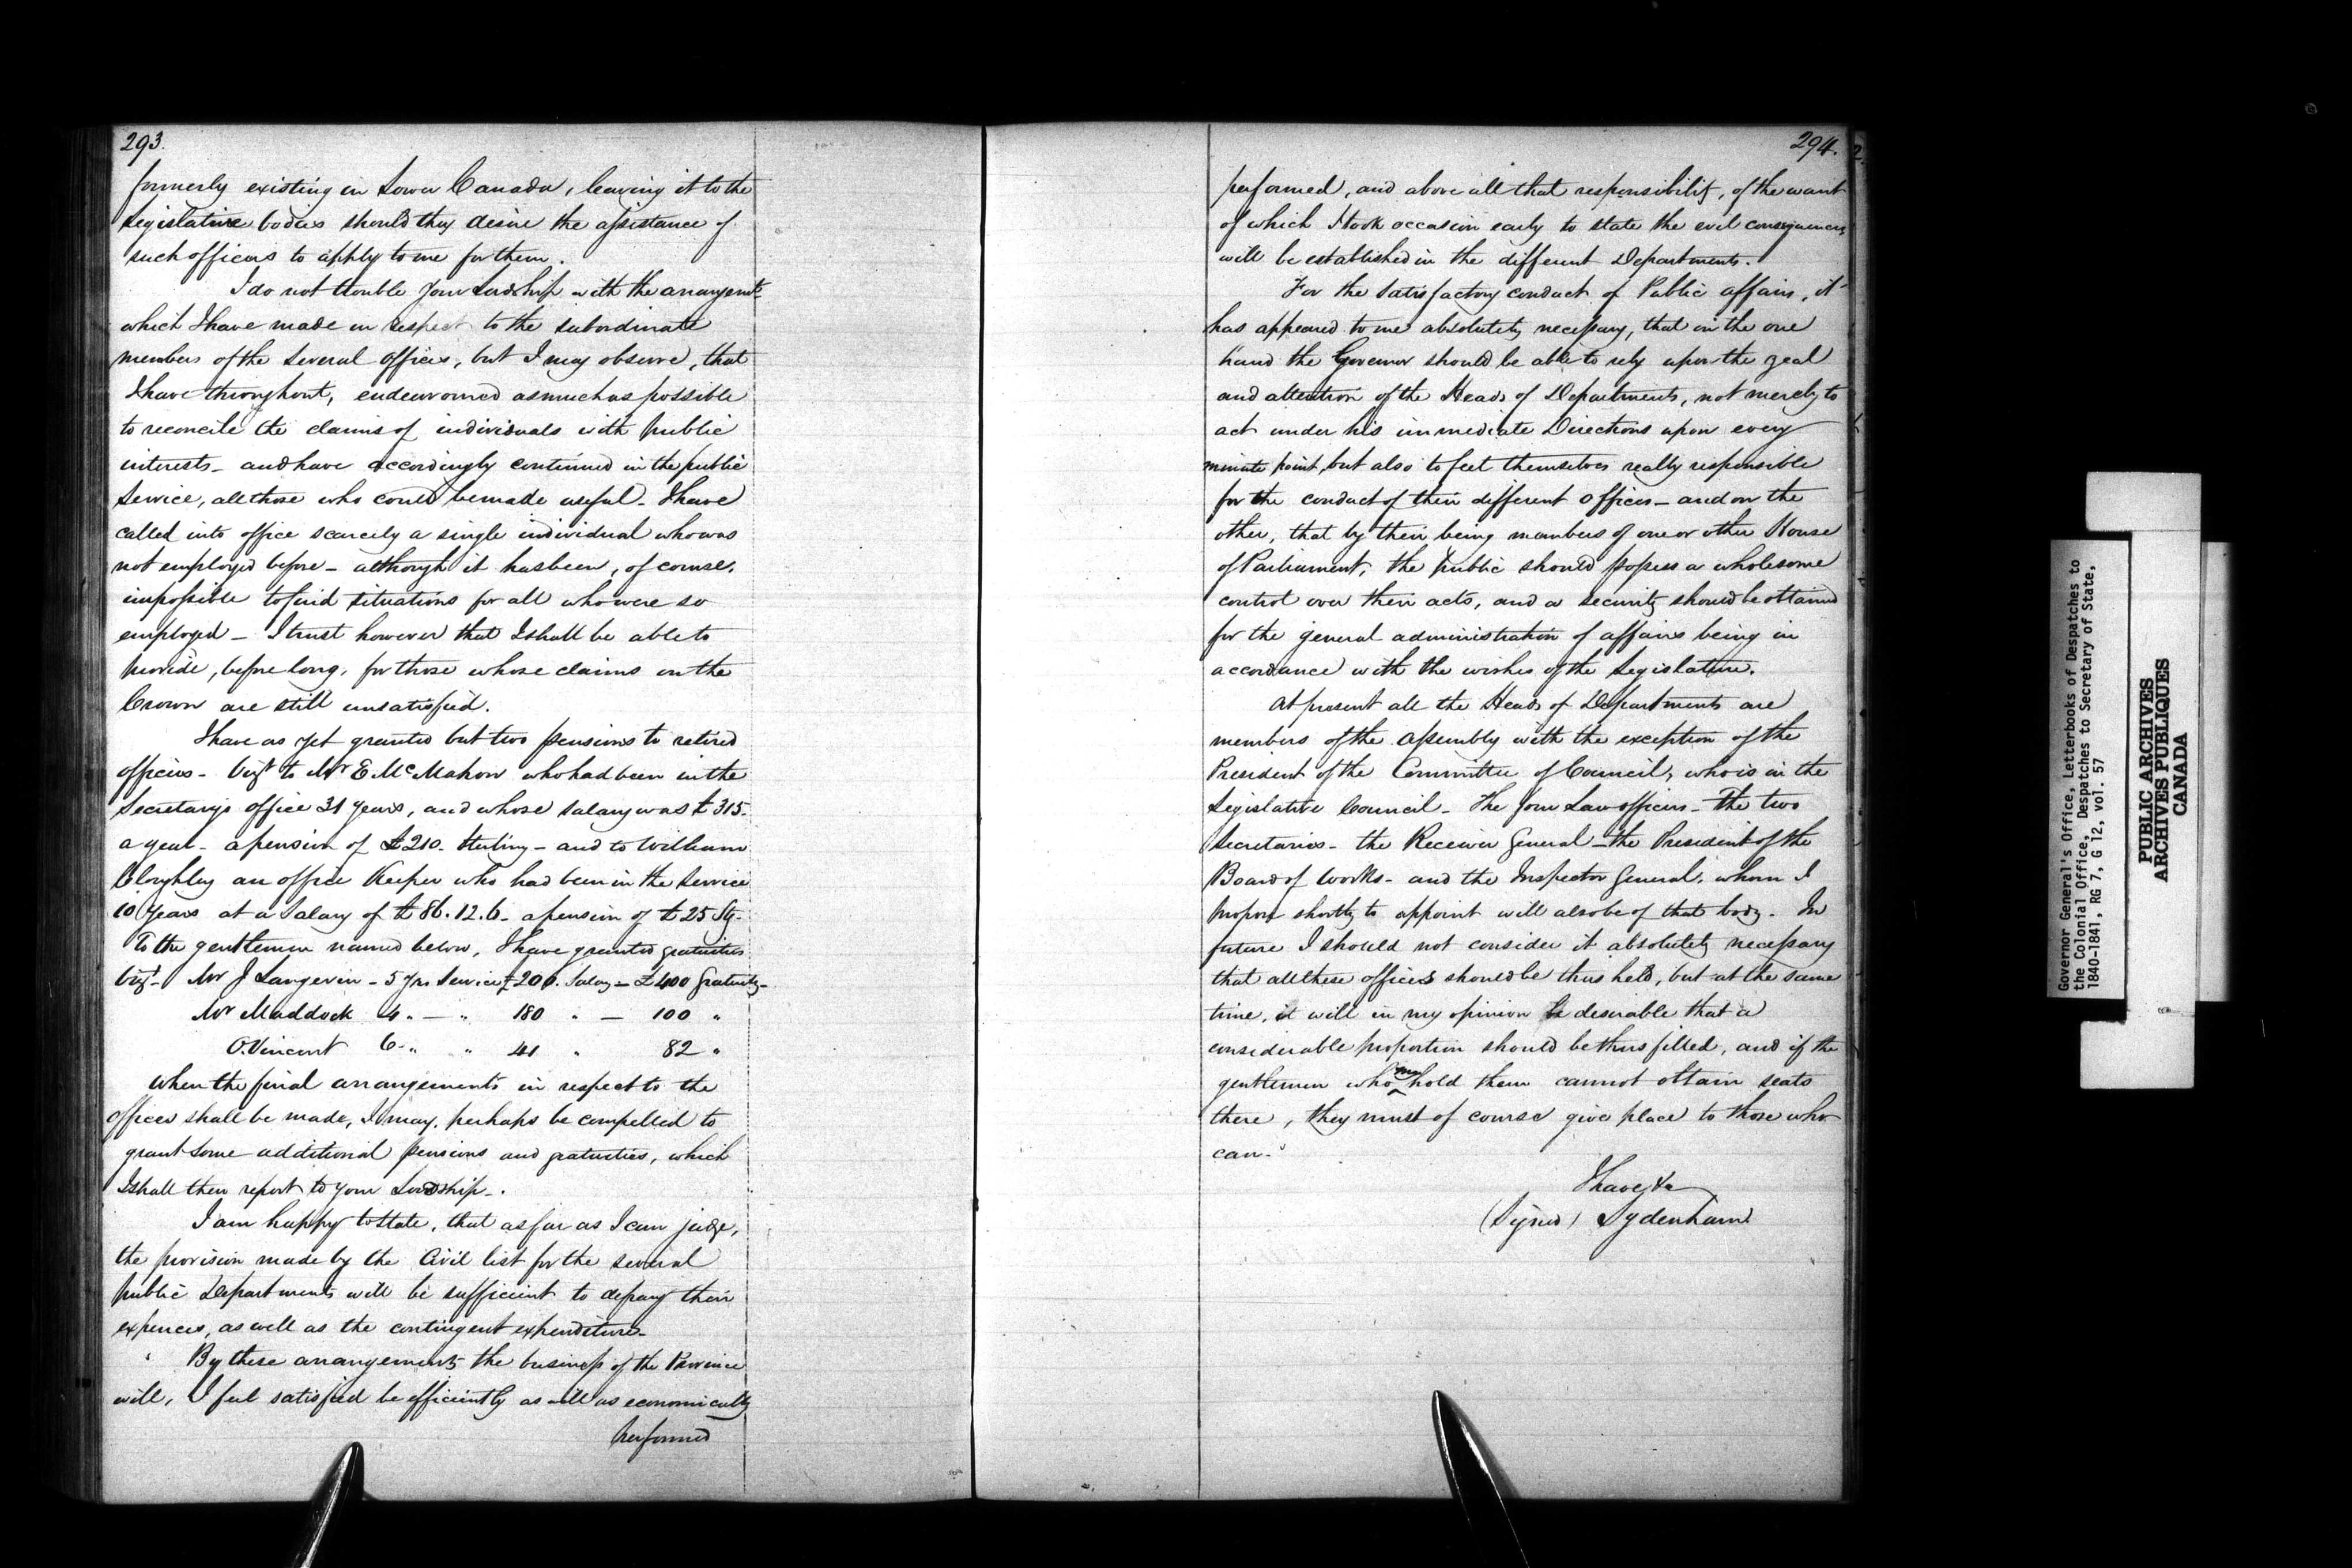 293.
formerly existing in Lower Canada, leaving it to the
Legislative bodies should they desire the assistance of
such officers to apply to me for them.
I do not trouble Your Lordship with the arrangemts
which I have made in respect to the subordinate
members of the several offices, but I may observe, that
I have throughout, endeavoured as much as possible
to reconcile the claims of individuals with public
interests – and have accordingly continued in the public
Service, all those who could be made useful – I have
called into office scarcely a single individual who was
not employed before – although it has been, of course,
impossible to find situations for all who were so
employed – I trust however that I shall be able to
provide, before long, for those whose claims on the
Crown are still unsatisfied.
I have as yet granted but two pensions to retired
officers – Vizt to Mr E McMahon who had been in the
Secretary's office 31 years, and whose salary was £315.
a year – a pension of £210. Sterling – and to William
Cloughley an office Keeper who had been in the Service
10 Years at a Salary of £86.12.6 – a pension of £25 Sg.
To the gentlemen named below, I have granted gratuities
Vizt – Mr J Langevin – 5 Yrs Service £200. Salary – £400 Gratuity –
Mr Maddock 4 " – " 180 " – 100 "
O. Vincent 6 – " " 41 " 82 "
When the final arrangements in respect to the
offices shall be made, I may, perhaps be compelled to
grant some additional pensions and gratuities, which
I shall then report to your Lordship –.
I am happy to state, that as far as I can judge,
the provision made by the Civil list for the several
public Departments will be sufficient to defray their
expences, as well as the contingent expenditure –
By these arrangements the business of the Province
will, I feel satisfied be efficiently as well as economically
performed
294.
performed, and above all that responsibility, of the want
of which I took occasion early to state the evil consequences
will be established in the different Departments.
For the satisfactory conduct of Public affairs, it
has appeared to me absolutely necessary, that in the one
hand the Governor should be able to rely upon the zeal
and attention of the Heads of Departments, not merely to
act under his immediate Directions upon every
minute point, but also to feel themselves really responsible
for the conduct of their different offices – and on the
other, that by their being members of one or other House
of Parliament, the public should possess a wholesome
control over their acts, and a security should be obtained
for the general administration of affairs being in
accordance with the wishes of the Legislature.
At present all the Heads of Departments are
members of the Assembly with the exception of the
President of the Committee of Council, who is in the
Legislative Council – The four Law officers – The two
Secretaries – the Receiver General – the President of the
Board of Works – and the Inspector General, whom I
propose shortly to appoint will also be of that body. In
future I should not consider it absolutely necessary
that all these offices should be thus held, but at the same
time, it will in my opinion be desirable that a
considerable proportion should be thus filled, and if the
gentlemen who may hold them cannot obtain seats
there, they must of course give place to those who
can.
I have &a
(Signed) Sydenham
Governor General's Office, Letterbooks of Despatches to
the Colonial Office, Despatches to Secretary of State,
1840-1841, RG 7, G 12, vol. 57
PUBLIC ARCHIVES
ARCHIVES PUBLIQUES
CANADA